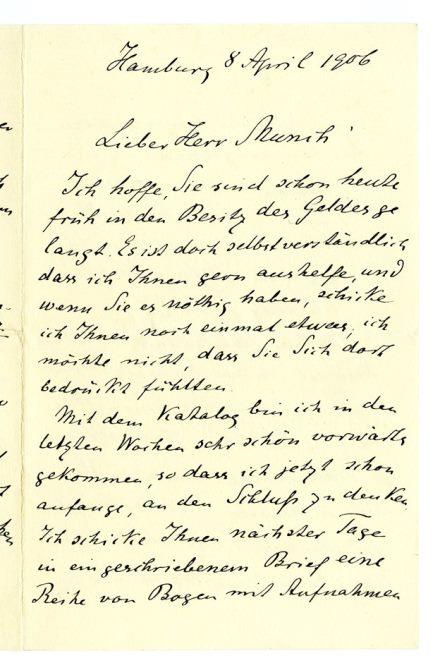 Hamburg 8 April 1906
Lieber Herr Munch!
Ich hoffe, Sie sind schon heute
früh in den Besitz des Geldes ge
langt. Es ist doch selbstverständlich
dass ich Ihnen gern aushelfe, und
wenn Sie es nöthig haben, schicke
ich Ihnen noch einmal etwas, ich
möchte nicht, dass Sie Sich dort
bedrückt fühlten.
Mit dem Katalog bin ich in den
letzten Wochen sehr schön vorwärts
gekommen, so dass ich jetzt schon
anfange, an den Schluß zu denken.
Ich schicke Ihnen nächster Tage
in eingeschriebenem Brief eine
Reihe von Bogen mit Aufnahmen